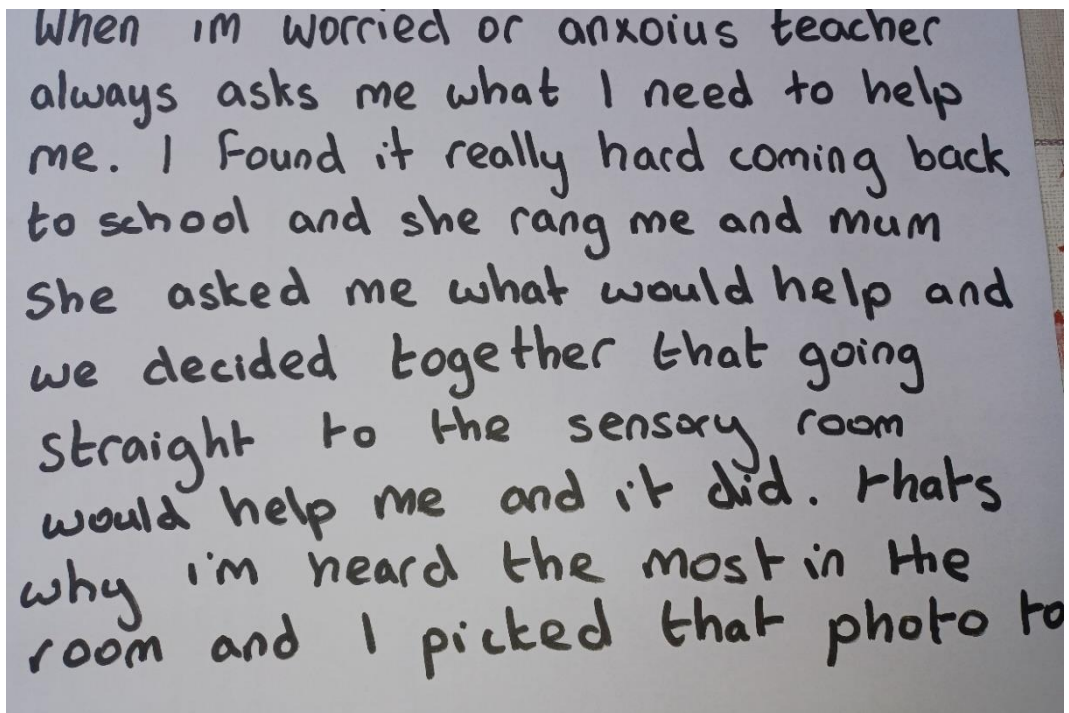 When im worried or anxoius teacher
always asks me what I need to help
me. I found it really hard coming back
to school and she rang me and mum
She asked me what would help and
we decided together that going
straight to the sensory room
would help me and it did. thats
why i'm heard the most in the
room and I picked that photo to